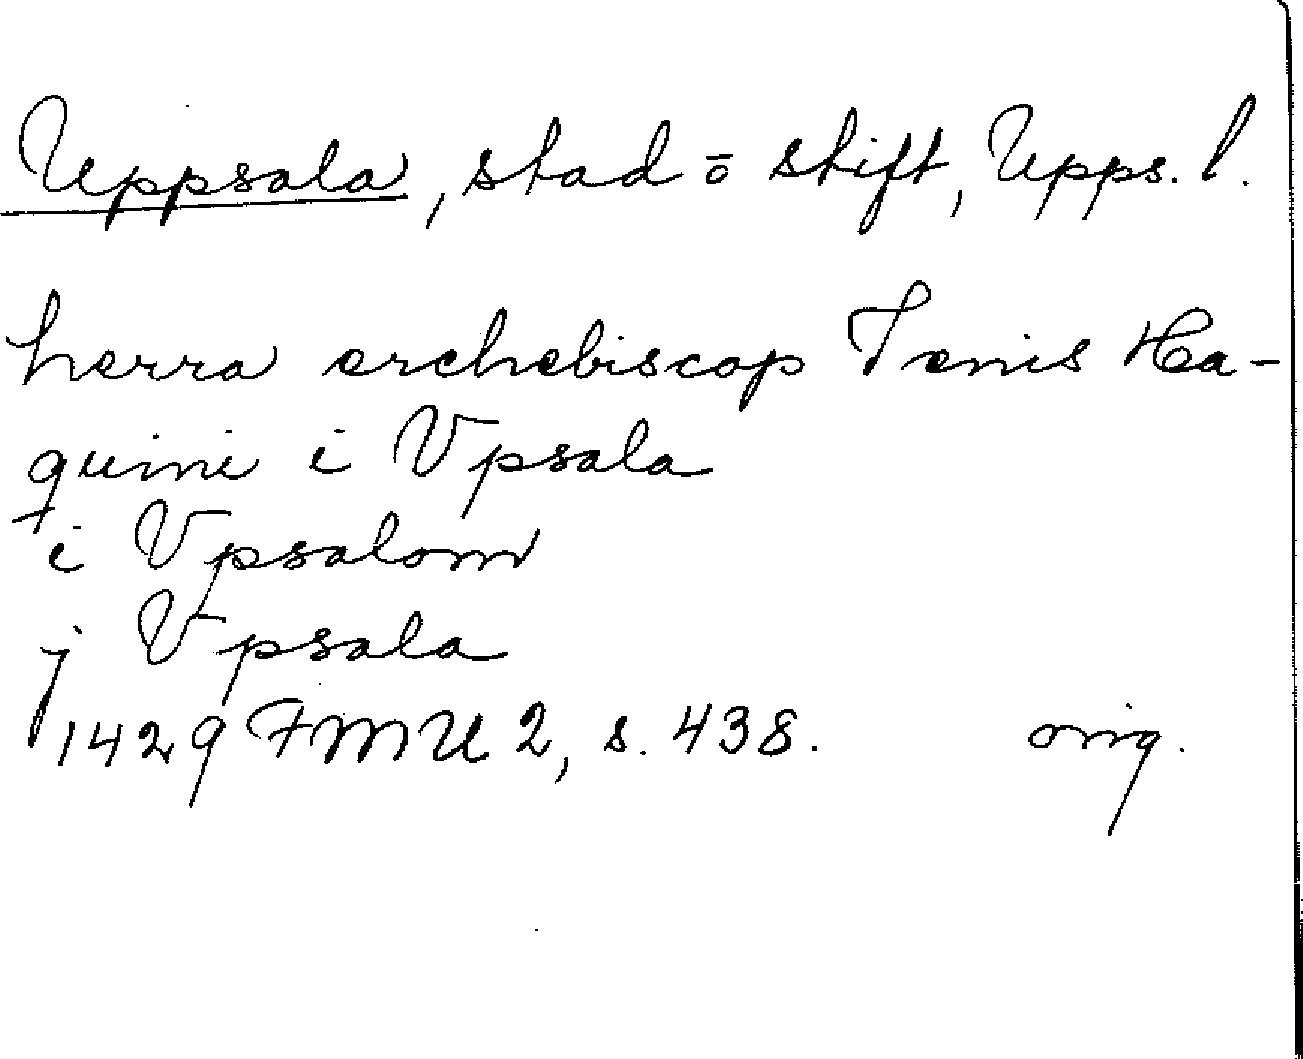 Uppsala, stad o stift, Upps. l.
herra erchebiscop Jenis Ha-
quini i Vpsala
i Vpsalom
j Vpsala
1429 FMU 2, s. 438. orig.